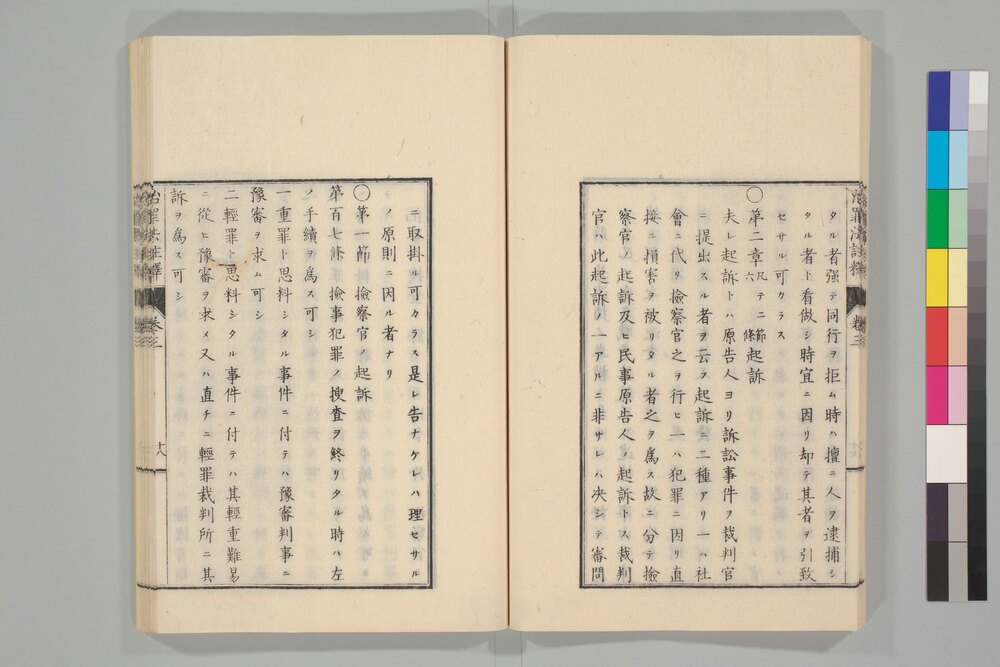 タル者强テ同行ヲ拒ム時ハ擅ニ人ヲ逮捕シ
タル者ト看做シ時宜ニ因リ却テ其者ヲ引致
セサル可カラス
○第二章 凡テ二節六條 起訴
夫レ起訴トハ原告人ヨリ訴訟事件ヲ裁判官
ニ提出スル者ヲ云フ起訴ニ二種アリ一ハ社
會ニ代リ撿察官之ヲ行ヒ一ハ犯罪ニ因リ直
接ニ損害ヲ被リタル者之ヲ爲ス故ニ分テ撿
察官ノ起訴及ヒ民事原告人ノ起訴トス裁判
官ハ此起訴ノ一アルニ非サレハ决シテ審問
ニ取掛ル可カラス是レ告ナケレハ理セサル
ノ原則ニ因ル者ナリ
○第一節 撿察官ノ起訴
第百七條 撿事犯罪ノ搜査ヲ終リタル時ハ左
ノ手續ヲ爲ス可シ
一重罪ト思料シタル事件ニ付テハ豫審判事ニ
豫審ヲ求ム可シ
二輕罪ト思料シタル事件ニ付テハ其輕重難易
ニ從ヒ豫審ヲ求メ又ハ直チニ輕罪裁判所ニ其
訴ヲ爲ス可シ
治罪法註釋 卷三